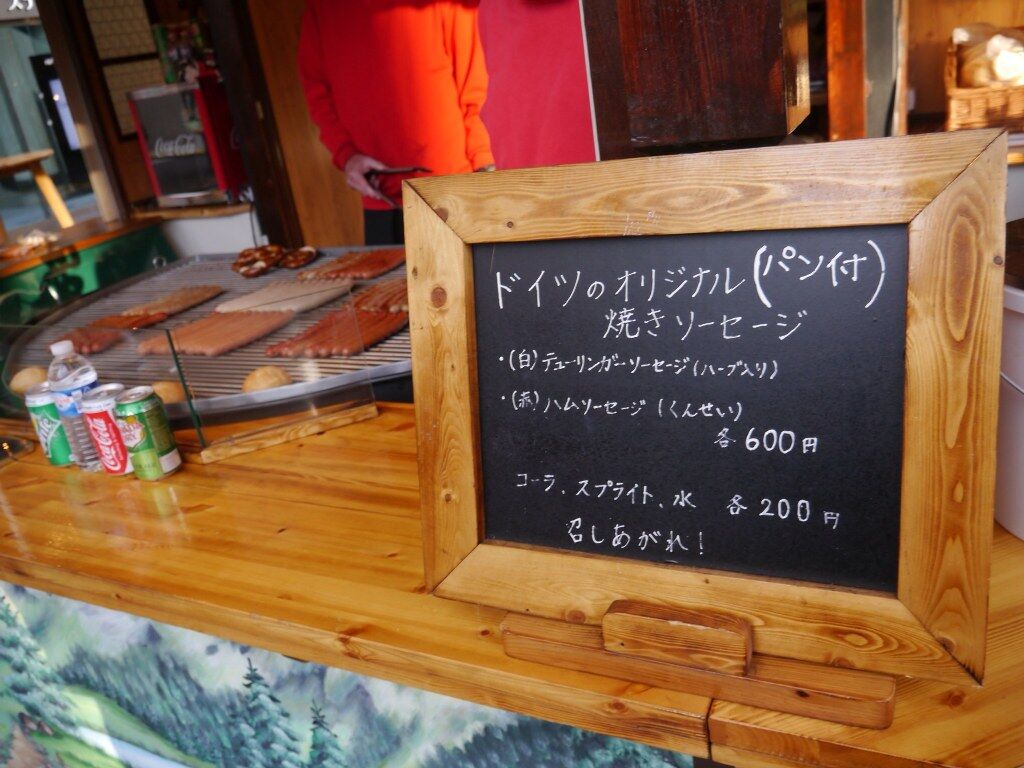 ドイツのオリジナル(パン付)
焼きソーセージ
・(白)テューリンガーソーセージ(ハーブ入り)
・(赤)ハムソーセージ(くんせい)
各600円
コーラ、スプライト、水 各200円
召しあがれ!
Coca-Cola
Coca-Cola